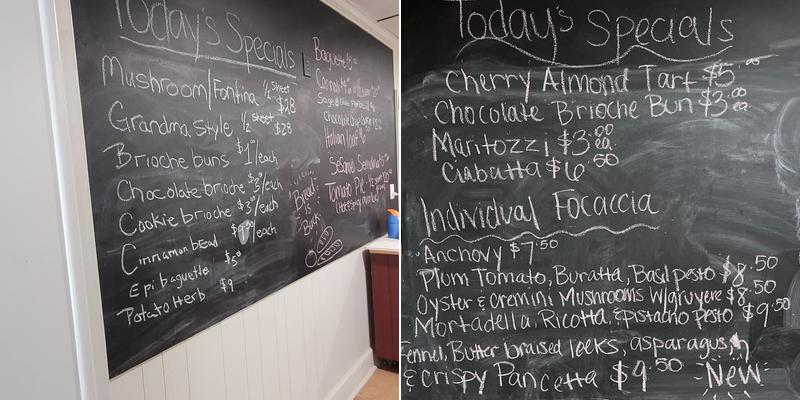 Today's Specials
Mushroom/Fontina ½ sheet $28
Grandma Style ½ sheet $28
Brioche buns $1/each
Chocolate brioche $3/each
Cookie brioche $3/each
Cinnamon bead /each
Epi baguette $5
Potato Herb $9
Baguette
Italian loaf
Sesame Semolina
Tomato Pie
Bread
is
Back
Today's Specials
Cherry Almond Tart $5.00
Chocolate Brioche Bun $3.00 ea
Maritozzi $3.00 ea.
Ciabatta $6.50
Individual Focaccia
Anchovy $7.50
Plum Tomato, Buratta, Basil pesto $8.50
Oyster & Cremini Mushrooms w/gruyere $8.50
Mortadella, Ricotta, & pistachio pesto $9.50
Fennel, Butter braised leeks, asparagus,
& crispy Pancetta $9.50 New